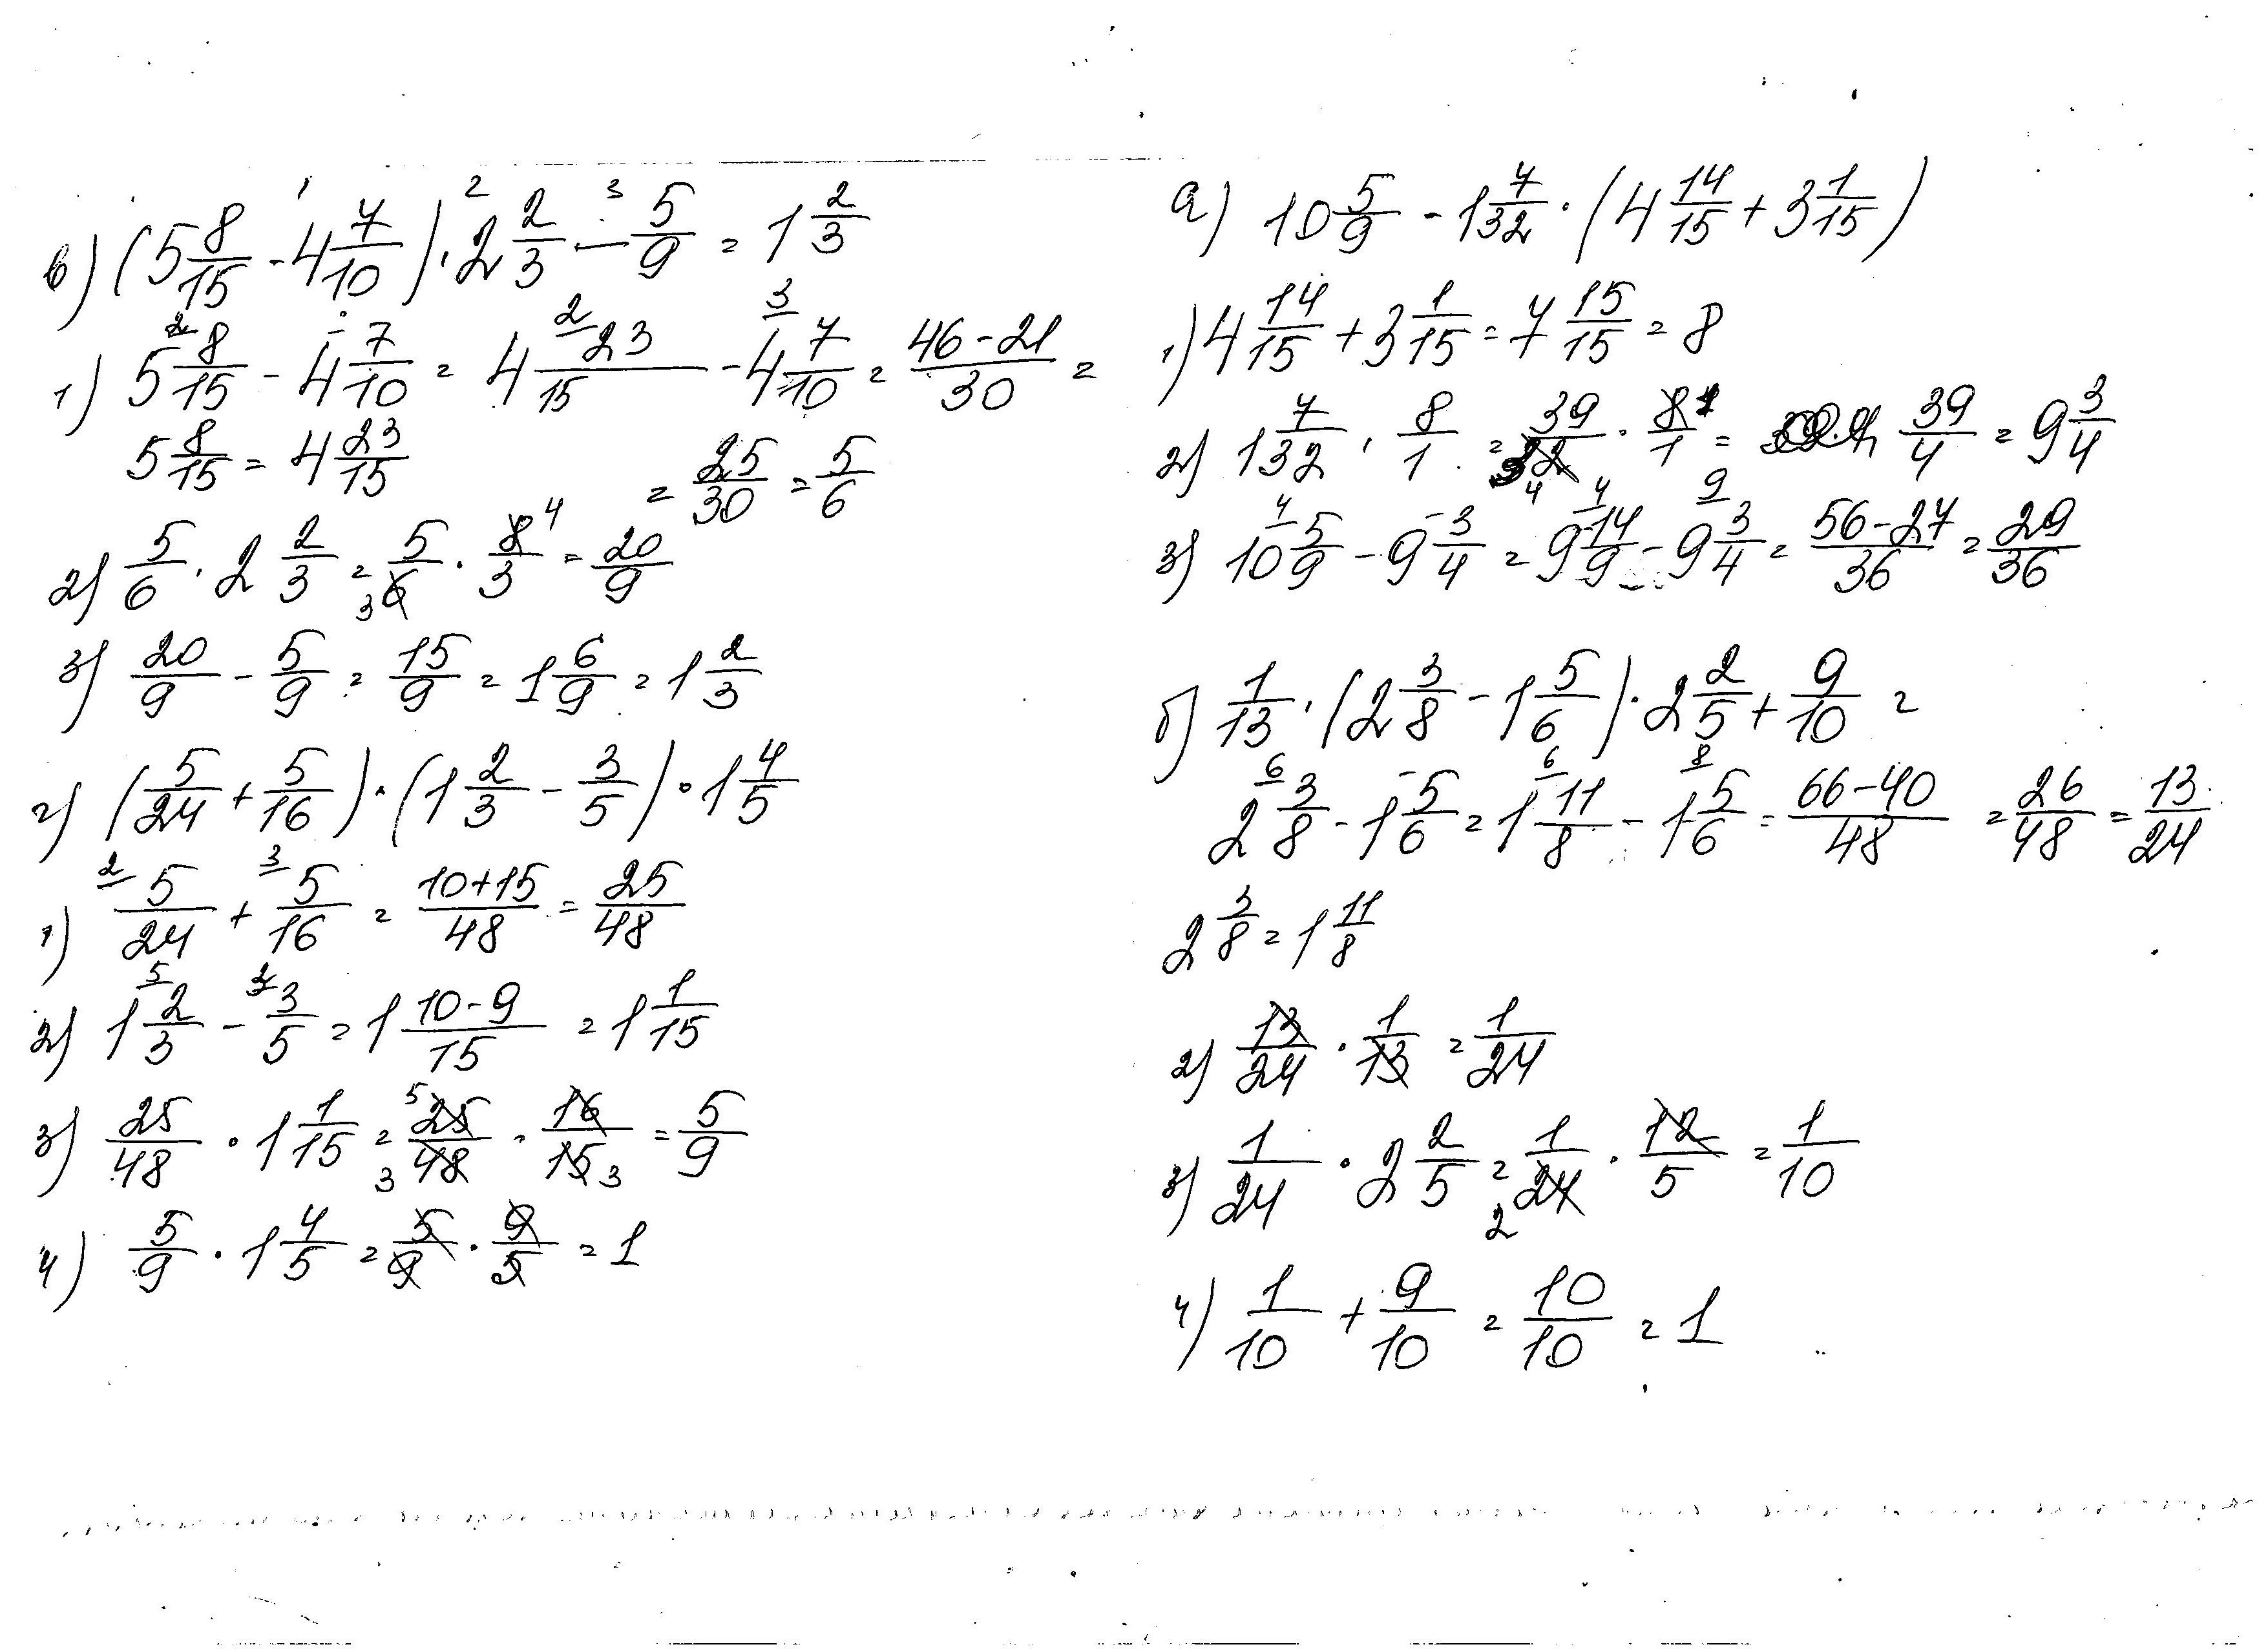 в) (5 8/15 - 4 7/10) · 2 2/3 - 5/9 = 1 2/3
1) 5 8/15 - 4 7/10 = 4 23/15 - 4 7/10 = 46-21/30 =
5 8/15 = 4 23/15
= 25/30 = 5/6
2) 5/6 · 2 2/3 = 5/6 · 8/3 = 20/9
3) 20/9 - 5/9 = 15/9 = 1 6/9 = 1 2/3
г) (5/24 + 5/16) · (1 2/3 - 3/5) · 1 4/5
1) 5/24 + 5/16 = 10+15/48 = 25/48
2) 1 2/3 - 3/5 = 1 10-9/15 = 1 1/15
3) 25/48 · 1 1/15 = 25/48 · 16/15 = 5/9
4) 5/9 · 1 4/5 = 5/9 · 9/5 = 1
а) 10 5/9 - 1 7/32 · (4 14/15 + 3 1/15)
1) 4 14/15 + 3 1/15 = 7 15/15 = 8
2) 1 7/32 · 8/1 = 39/32 · 8/1 = 39/4 = 9 3/4
3) 10 5/9 - 9 3/4 = 9 14/9 - 9 3/4 = 56-27/36 = 29/36
б) 1/13 · (2 3/8 - 1 5/6) · 2 2/5 + 9/10 =
2 3/8 - 1 5/6 = 1 11/8 - 1 5/6 = 66-40/48 = 26/48 = 13/24
2 3/8 = 1 11/8
2) 13/24 · 1/13 = 1/24
3) 1/24 · 2 2/5 = 1/24 · 12/5 = 1/10
4) 1/10 + 9/10 = 10/10 = 1